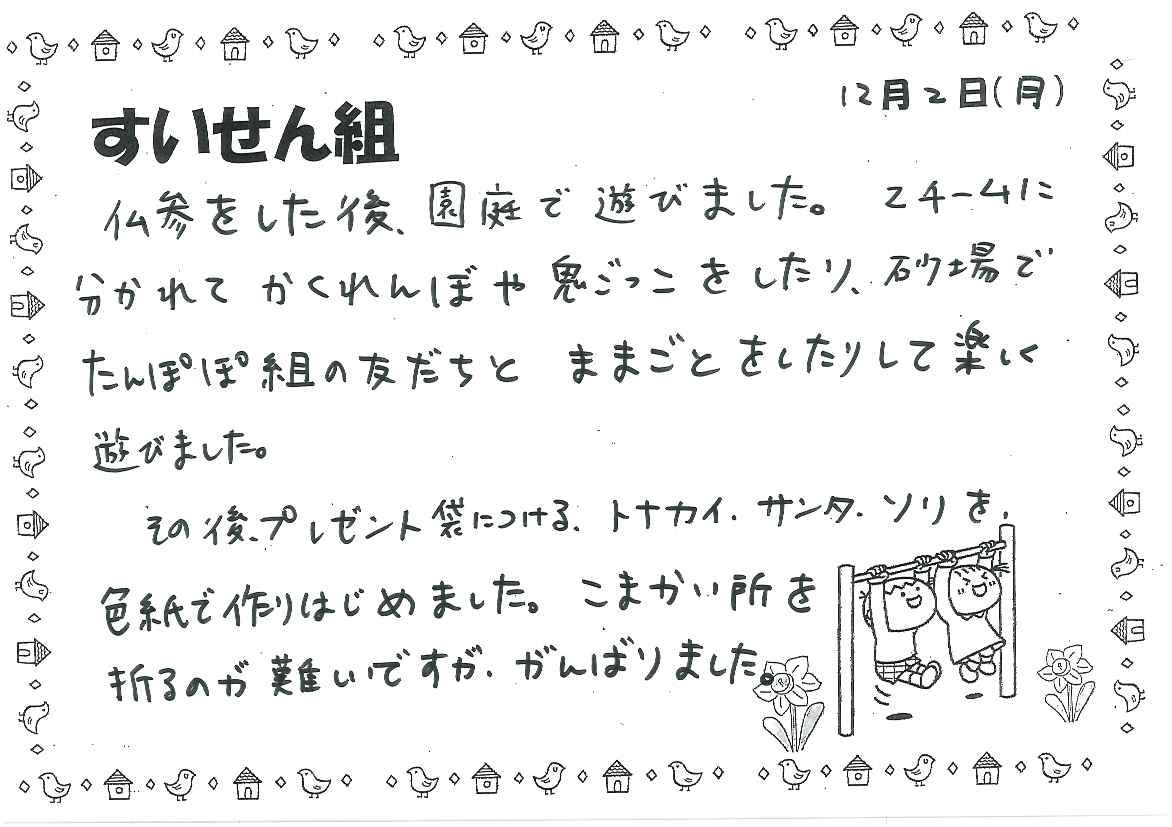 12月2日(月)
すいせん組
仏参をした後、園庭で遊びました。2チームに
分かれてかくれんぼや鬼ごっこをしたり、砂場で
たんぽぽ組の友だちと ままごとをしたりして楽しく
遊びました。
その後、プレゼント袋につける、トナカイ、サンタ、ソリを、
色紙で作りはじめました。こまかい所を
折るのが難いですが、がんばりました。